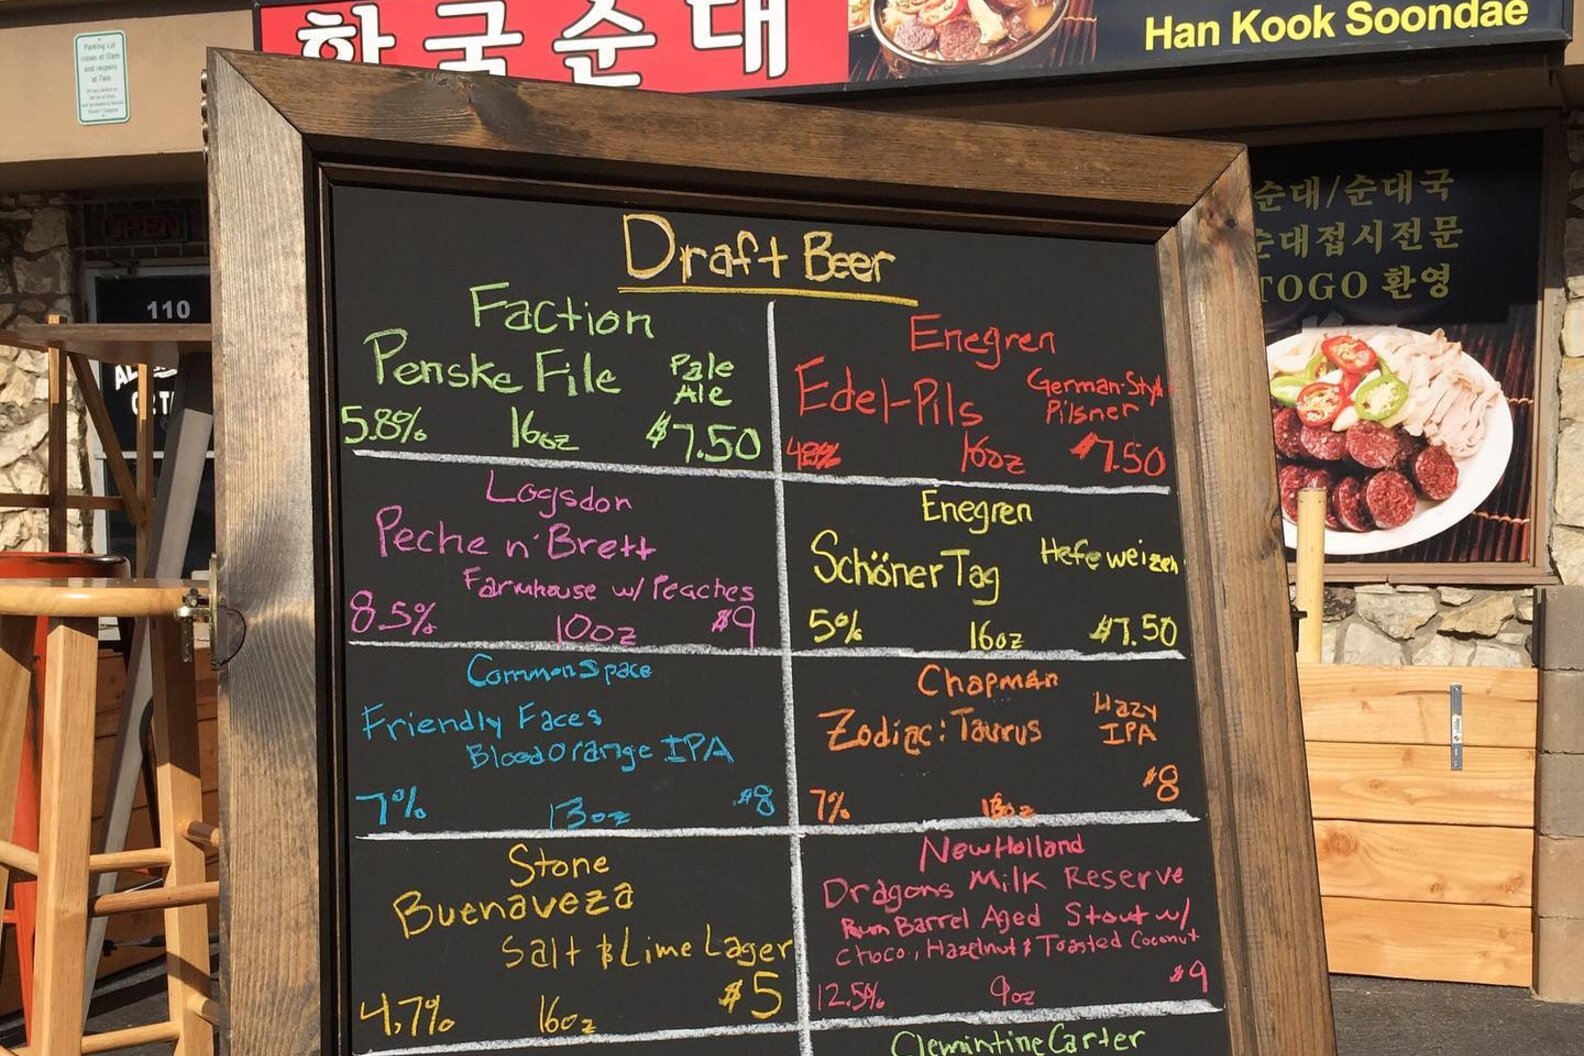 한국순대
Han Kook Soondae
Parking Lot
OPEN
110
순대/순대국
순대접시전문
TOGO 환영
Draft Beer
Faction
Penske File
Pale
Ale
5.8% 16oz $7.50
Enegren
Edel-Pils
German-Style
Pilsner
16oz $7.50
Logsdon
Peche n' Brett
Farmhouse w/ Peaches
8.5% 10oz $9
Enegren
Schöner Tag
Hefeweizen
5% 16oz $7.50
Common Space
Friendly Faces
Blood Orange IPA
7% 13oz $8
Chapman
Zodiac: Taurus
Hazy
IPA
7% 13oz $8
Stone
Buenaveza
Salt & Lime Lager
4.7% 16oz $5
New Holland
Dragons Milk Reserve
Rum Barrel Aged Stout w/
Choco, Hazelnut & Toasted Coconut
12.5% 9oz $9
Clemintine Carter